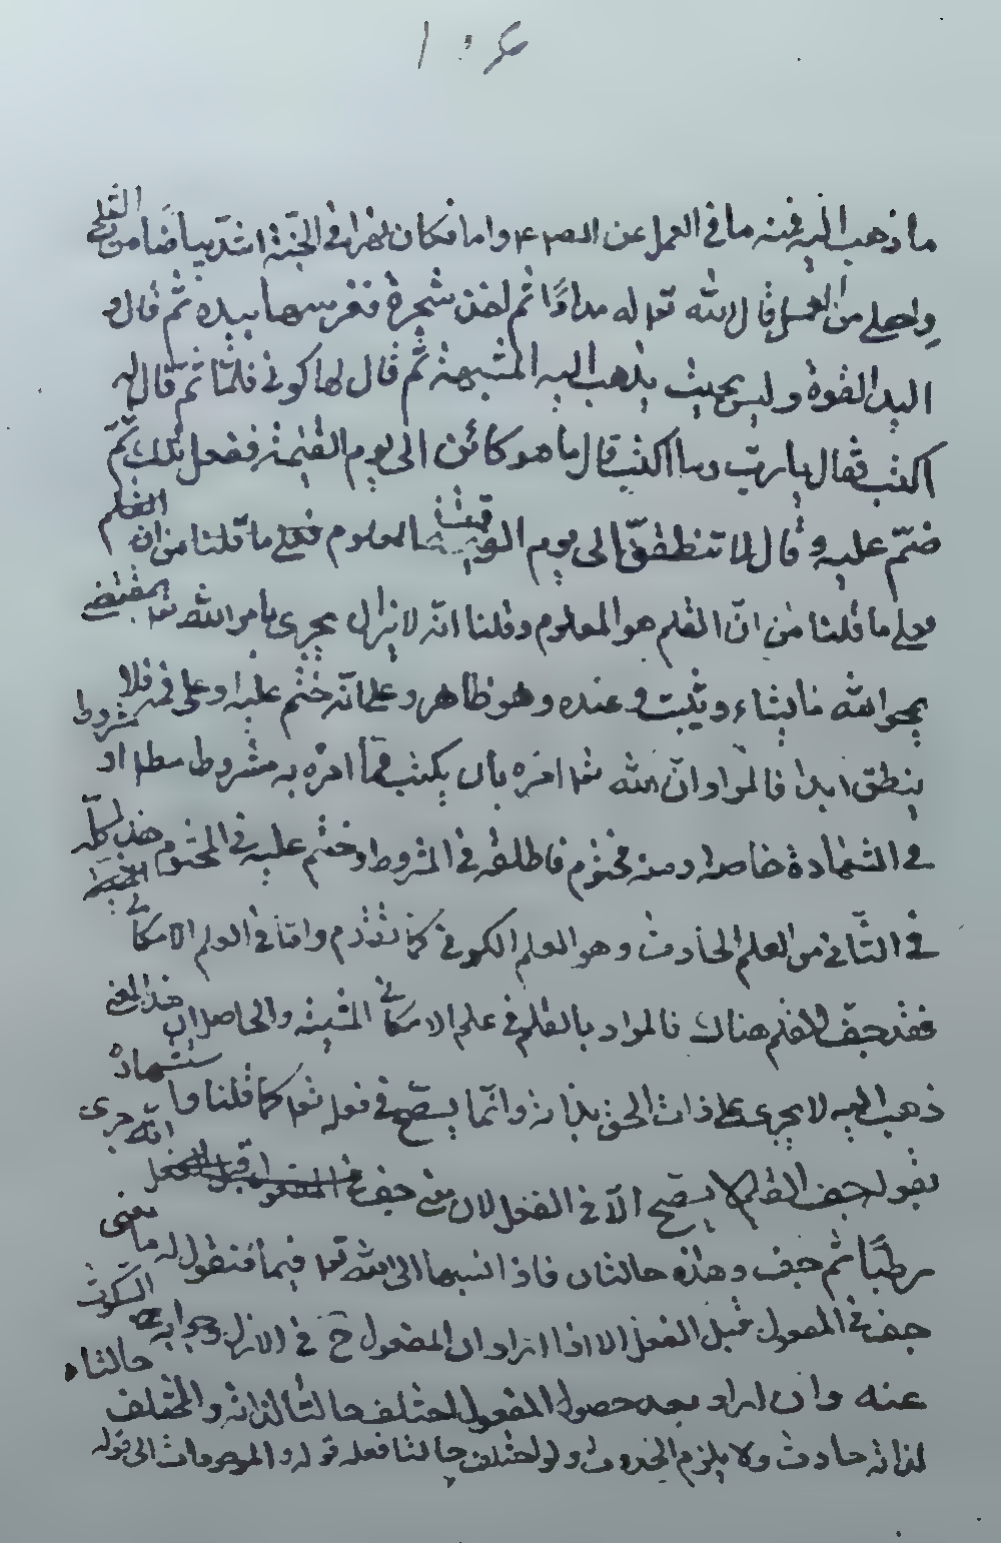 ١٠٤
ما ذهب اليه فيه ما في العمل عن واما ن فكان نهرا في الجنة اشد بياضا من الثلج
واحلى من العسل قال الله تع له مدادا ثم اخذ شجرة فغرسها بيده ثم قال و
اليد القوة وليس بحيث يذهب اليه المشبهة ثم قال لها كوني قلما ثم قال له
اكتب فقال يا رب وما اكتب قال ما هو كائن الى يوم القيمة ففعل ذلك ثم
ختم عليه وقال لا تنطقن الى يوم الوقت المعلوم فعلى ما قلنا من ان القلم
فعلى ما قلنا من ان القلم هو المعلوم وقلنا انه لا يزال يجرى بامر الله تع بمقتضى
يمحو الله ما يشاء ويثبت وعنده وهو ظاهر وعلى انه ختم عليه او على فمه فلا
ينطق ابدا فالمراد ان الله تع امره بان يكتب فما امره به مشروط او مشروط
في الشهادة خاصة ومنه محتوم فاطلقه في المشروط وختم عليه في المحتوم هذا كله
في الثاني من العلم الحادث وهو العلم الكوني كما تقدم واما في العلم الامكاني
فقد جف القلم هناك فالمراد بالقلم في علم الامكاني المشيئة والحاصل ان هذا المعنى
ذهب اليه لا يجرى على ذات الحق بذاته وانما يصح في فعله تع كما قلنا وما ستشهاده
بقوله جف القلم لا يصح الا في الفعل لان معنى جف انه جرى
رطبا ثم جف وهذه حالتان فاذا نسبها الى الله تع فيما فنقول له ما معنى
جف في المفعول قبل الفعل الا اذا اراد ان المفعول ح في الازل وجوابه السكوت
عنه وان اراد بعد حصول المفعول اختلف حالتا لذاته والمختلف حالتاه
لذاته حادث ولا يلزم الحدوث ولو اختلف حالتا فعله قوله والموجودات الى قوله